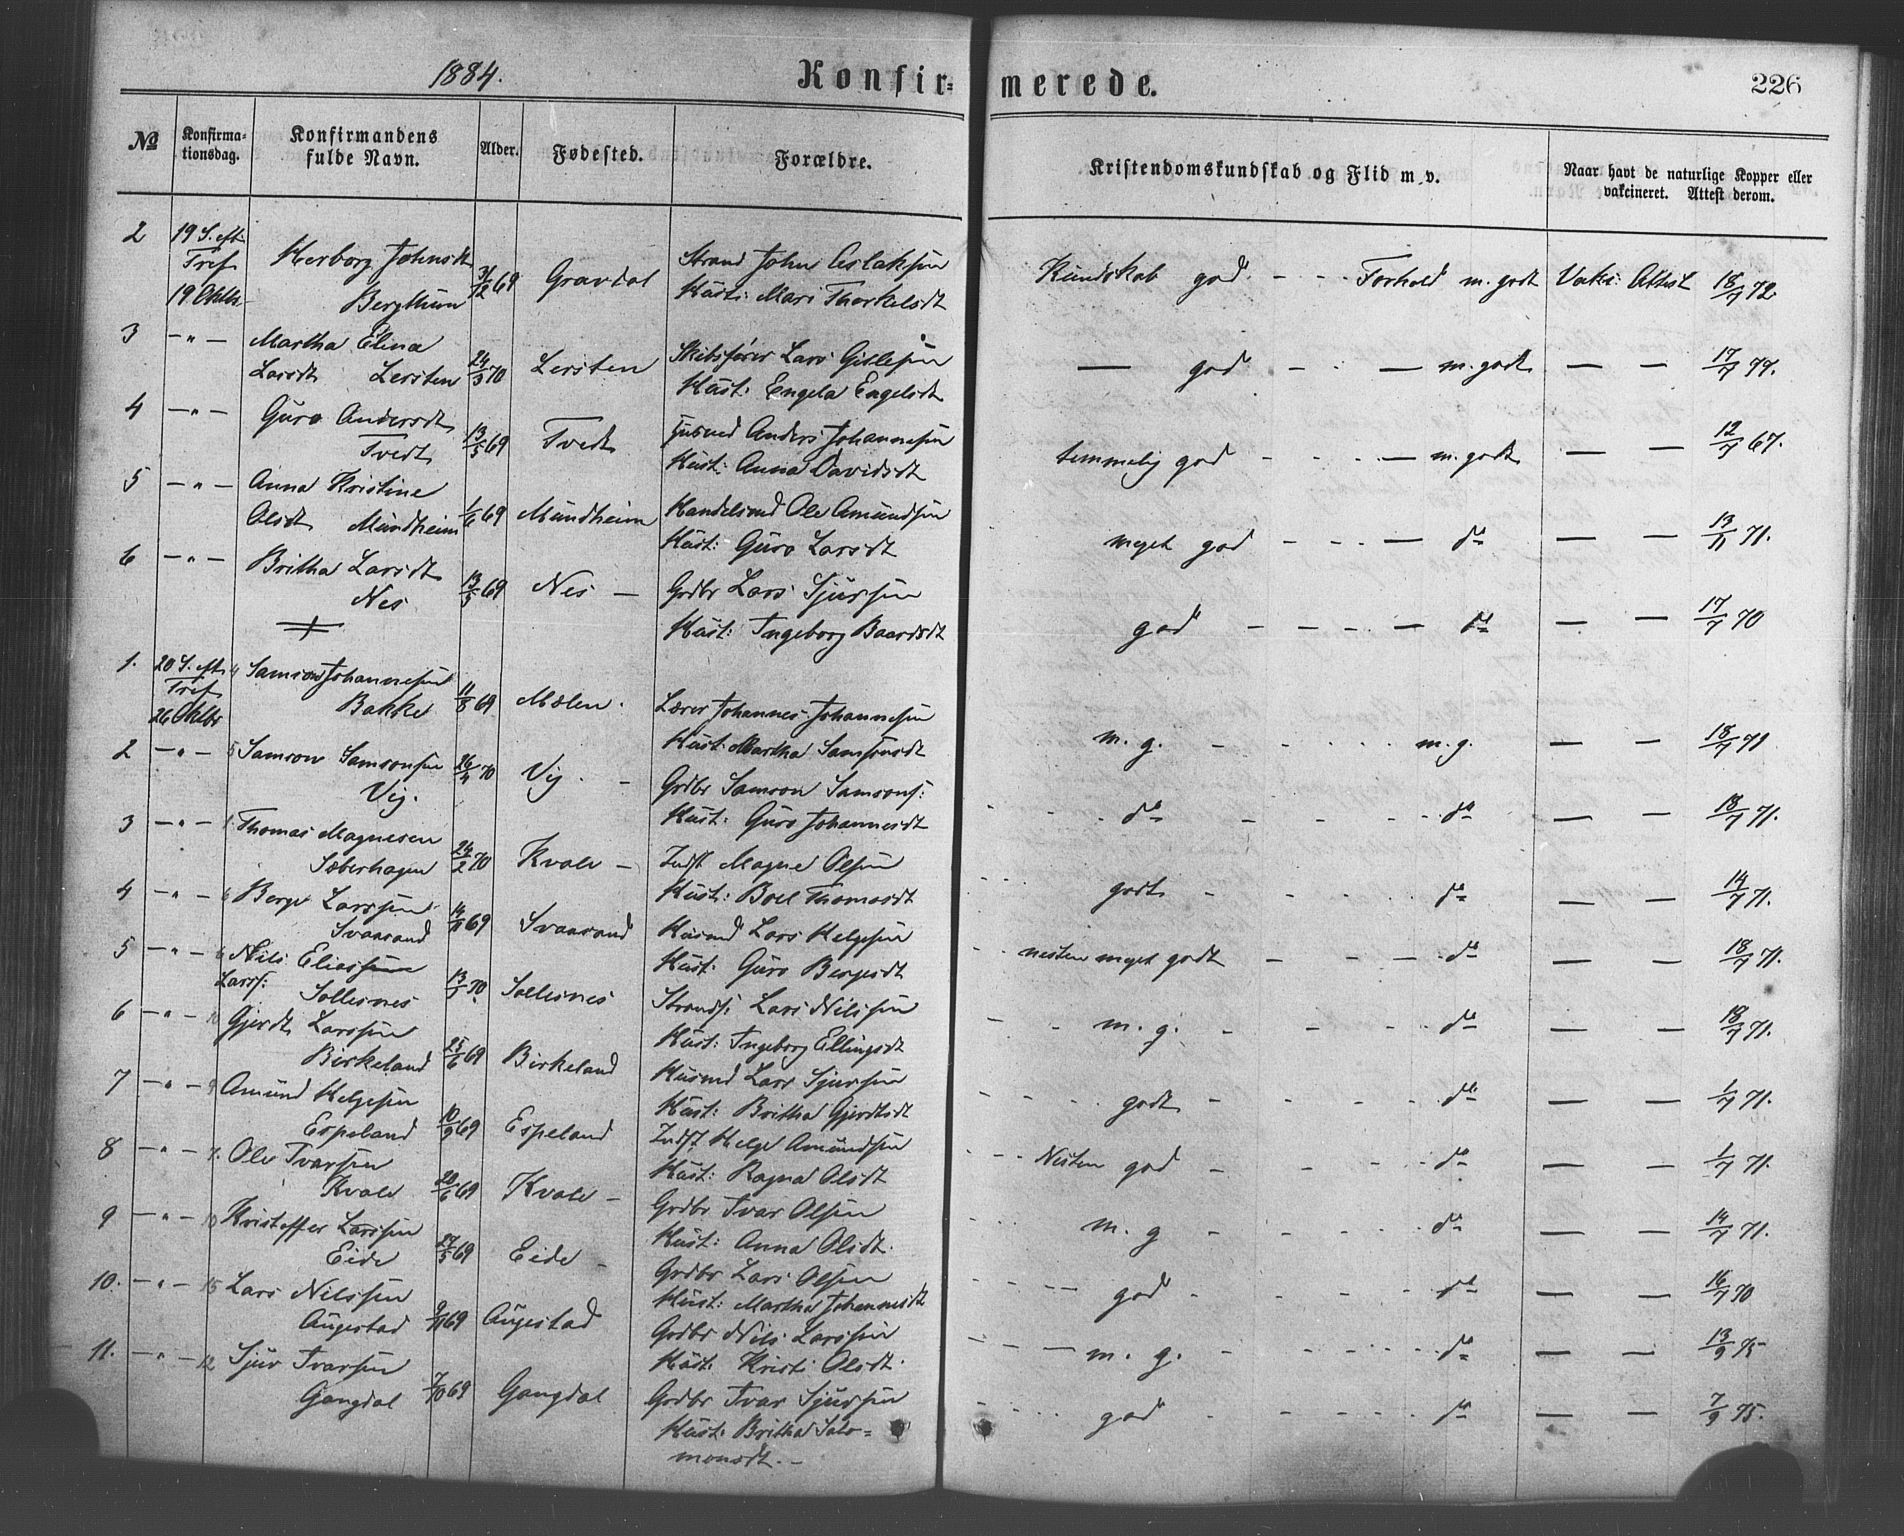 1884. Konfir= merede. 226
№ Konfirma- Konfirmandens Alder. Fødested. Forældre. Kristendomskundskab og Flid m. v. Naar havt de naturlige Kopper eller
tionsdag. fulde Navn. vakcineret. Attest derom.
2 19 S. eft. Herborg Johnsdt 31/12 69 Gravdal Strand John Aslaksen Kundskab god - - Forhold m. godt Vakc: Attest 18/7 72
Tref
19 Oktbr Bergthun Hust: Mari Thorkelsdt
3 — " — Martha Elina 24/3 70 Lersten Skibsfører Lars Gitlesen — god - - — m. godt — — 17/7 77.
Larsdt Lersten Hust: Engela Engelsdt
4 — " — Guro Andersdt 13/5 69 Tvedt Husmd Anders Johannesen temmelig god - - - — m. godt — — 12/7 67.
Tvedt Hust: Anna Davidsdt
5 — " — Anna Kristine 1/6 69 Mundheim Handelsmd Ole Amundsen meget god - - - — do — — 13/11 71.
Olsdt Mundheim Hust: Guro Larsdt
6 — " — Britha Larsdt 13/5 69 Nes — Grdbr Lars Sjursen god - - - — do — — 17/7 70
Nes Hust: Ingeborg Baardsdt
1. 20 S. eft. 4 Samson Johannesen 11/8 69 Mælen. Lærer Johannes Johannesen m. g. - - - - m. g. — — 18/7 71
Tref Bakke
26 Oktbr Hust: Martha Samsonsdt
2 — " — 5 Samson Samsonsen 26/4 70 Vig. - Grdbr Samson Samsons: - - do - - - - do — — 18/7 71.
Vig. Hust: Guro Johannesdt
3 — " — 1. Thomas Magnesen 24/2 70 Kvale — Indst Magne Olsen - - - godt - - - do — — 14/7 71.
Sæberhagen Hust: Boel Thomasdt
4 — " — 6 Berge Larssen 14/11 69 Svaasand Husmd Lars Helgesen - - nesten meget godt - - - do — — 18/7 71.
Svaasand Hust: Guro Bergesdt
5 — " — 6 Nils Eliassen 13/5 70 Sollesnes Strands: Lars Nilssen - - m. g. - - - do — — 18/7 71.
Larss: Sollesnes Hust: Ingeborg Ellingsdt
6 — " — 10 Gjerdt Larssen 25/6 69 Birkeland Husmd Lars Sjursen - - - - godt - - - do — — 1/7 71.
Birkeland Hust: Britha Gjerdtsdt
7 — " — 9 Amund Helgesen 10/9 69 Espeland Indst Helge Amundsen - - - Nesten god - - - do — — 1/7 71.
Espeland Hust: Ragna Olsdt
8 — " — 7. Ole Ivarsen 20/6 69 Kvale — Grdbr Ivar Olsen - - - m. g - - - do — — 14/7 71.
Kvale Hust: Anna Olsdt.
9 — " — 13 Kristoffer Larssen 27/5 69 Eide — Grdbr Lars Olsen - - — god - - - do — — 16/7 70
Eide Hust: Martha Johannesdt
10. — " — 15 Lars Nilssen 9/11 69 Augestad Grdbr Nils Larssen - — — m. g. - - - do — — 13/9 75
Augestad Hust: Kristi Olsdt.
11. — " — 12 Sjur Ivarsen 7/10 69 Gangdal Grdbr Ivar Sjursen - - - - god - - - do — — 7/9 75.
Gangdal Hust: Britha Salo=
monsdt. —